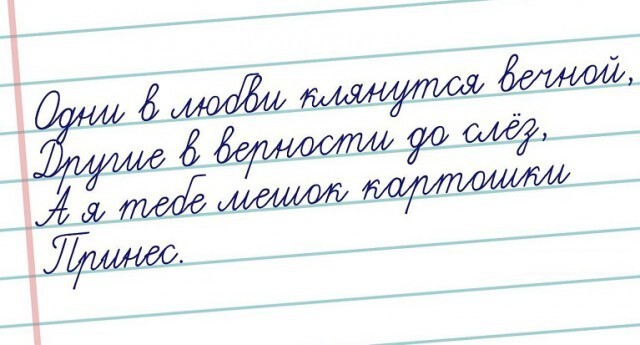 Одни в любви клянутся вечной,
Другие в верности до слёз,
А я тебе мешок картошки
Принес.